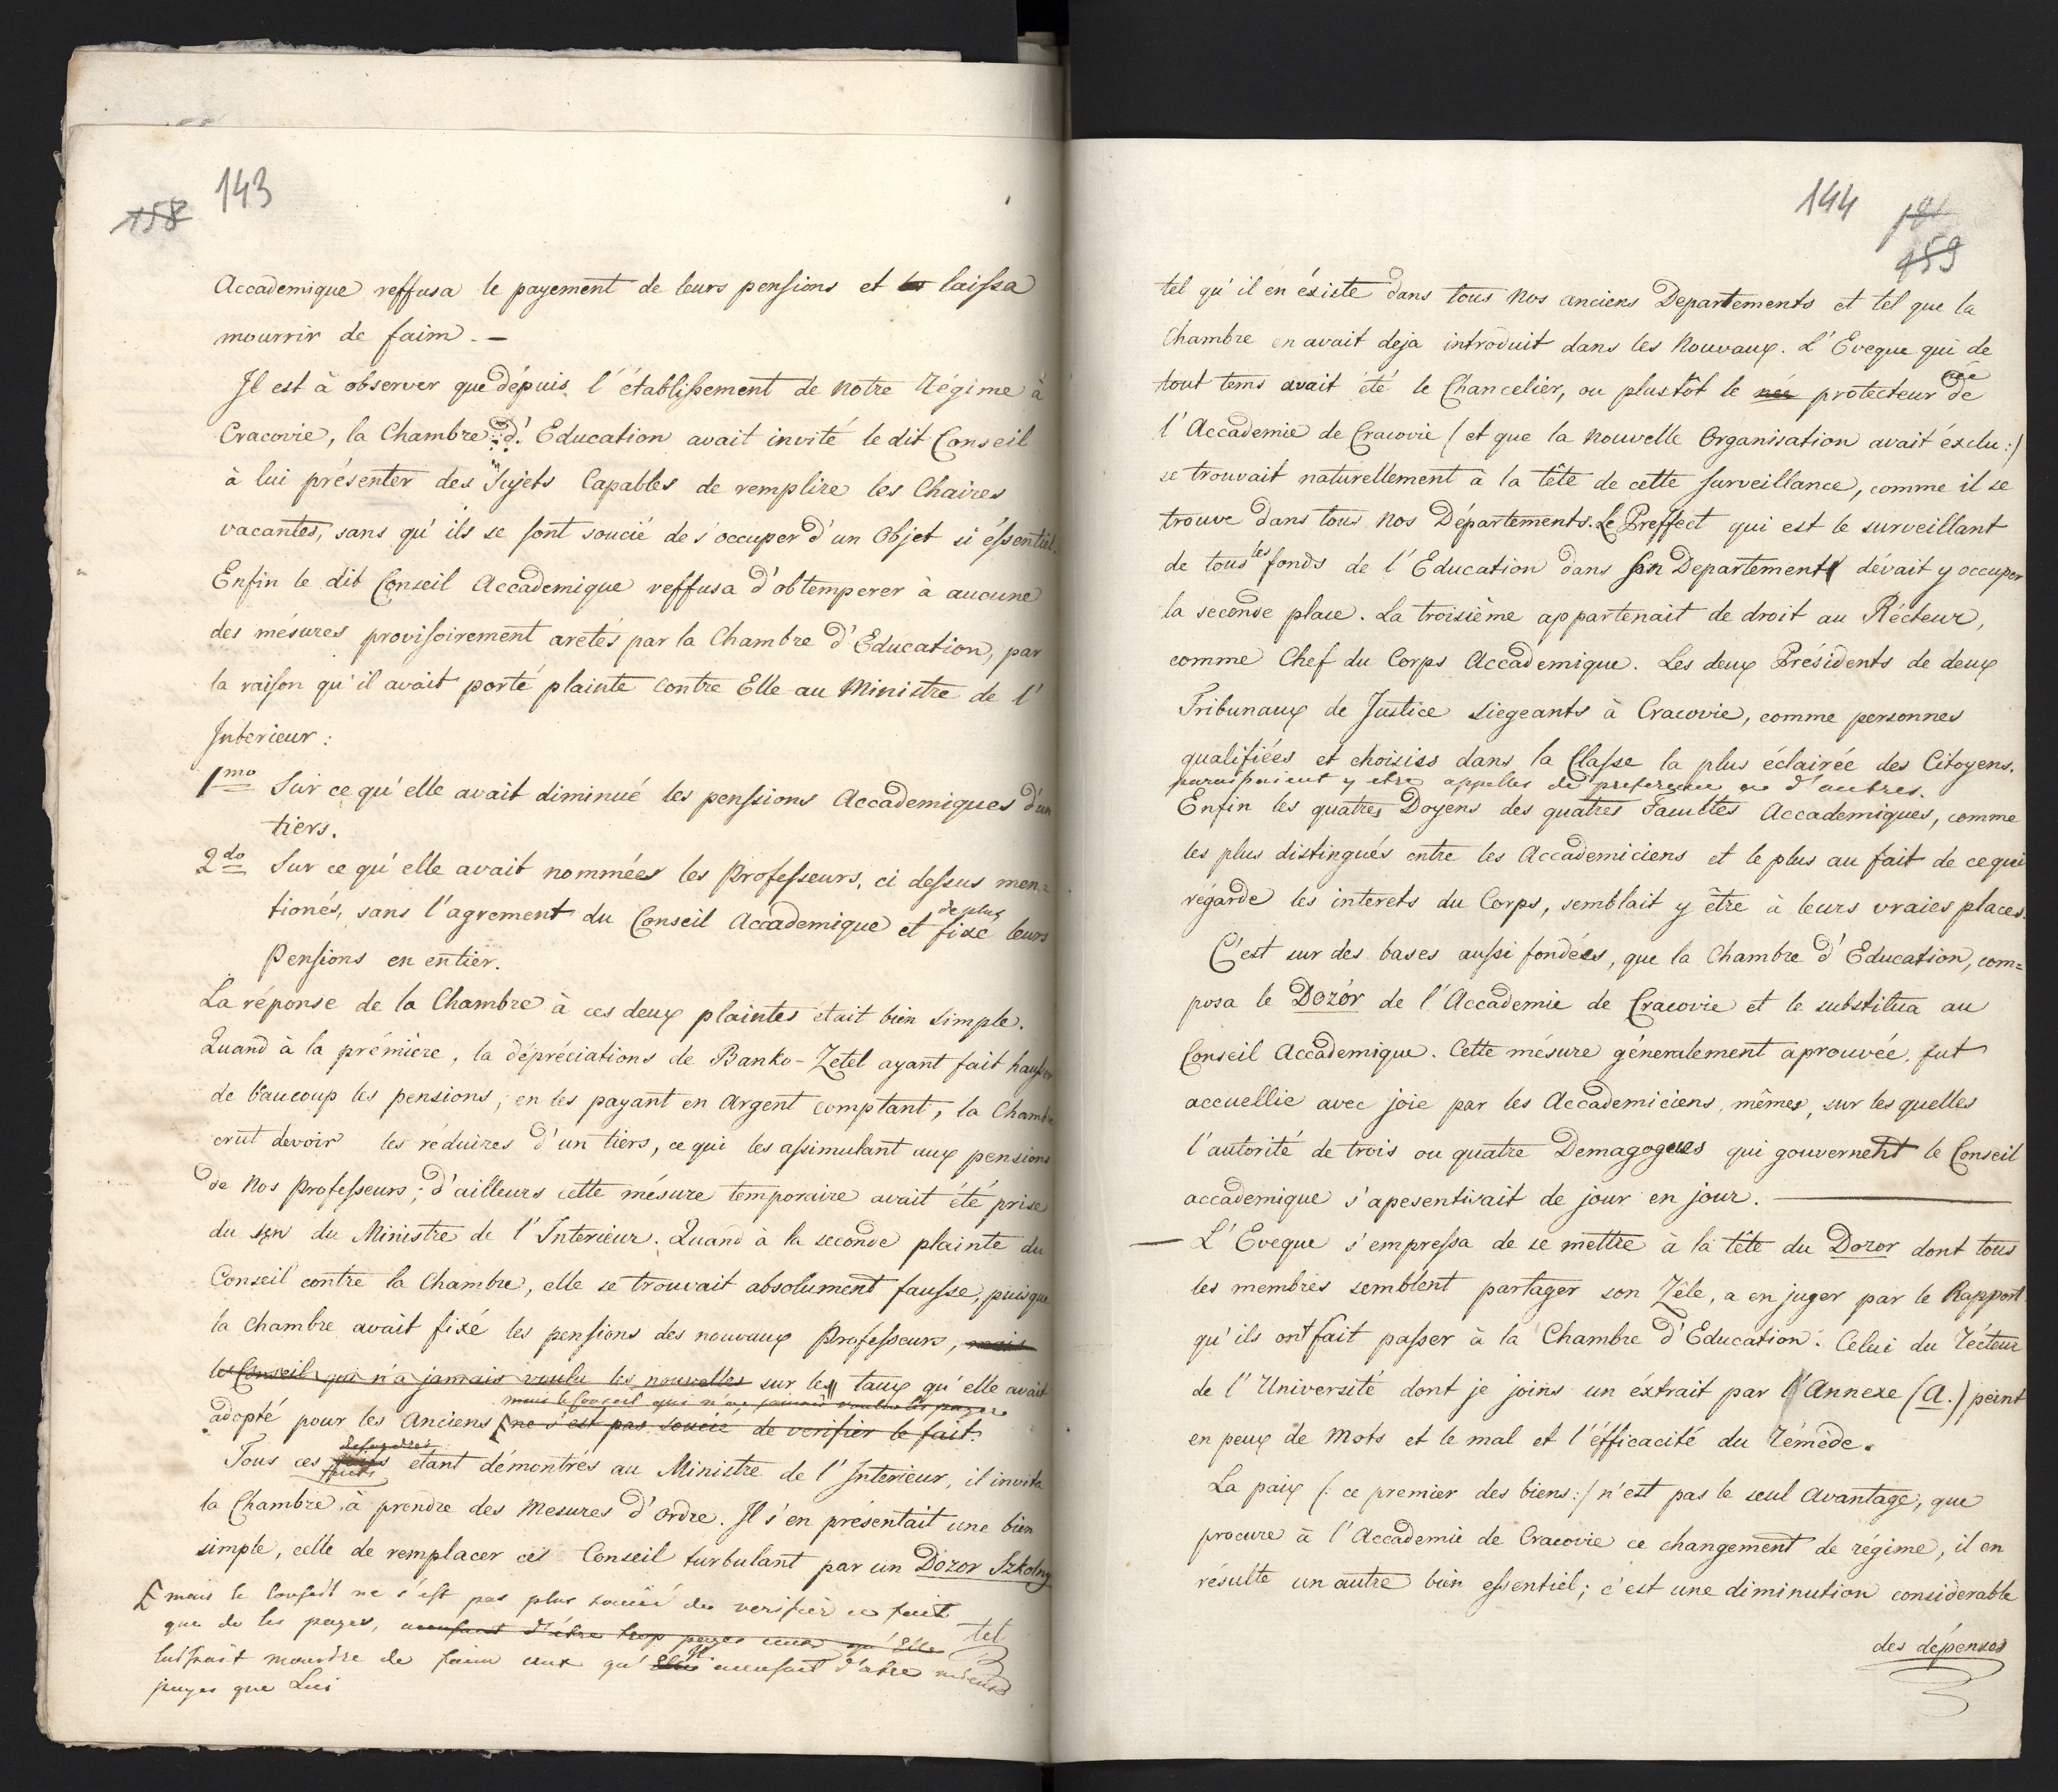 143
158
Accademique reffusa le payement de leurs pensions et les laissa
mourrir de faim. —
Il est à observer que dépuis l'établissement de notre Régime à
Cracovie, la Chambre d'Education avait invité le dit Conseil
à lui présenter des Sujets Capables de remplire les Chaires
vacantes, sans qu'ils se sont soucié de s'occuper d'un Objet si éssentiel.
Enfin le dit Conseil Accademique reffusa d'obtemperer à aucune
des mésures provisoirement aretés par la Chambre d'Education, par
la raison qu'il avait porté plainte contre Elle au Ministre de l'
Interieur:
1mo Sur ce qu'elle avait diminué les penssions Accademiques d'un
tiers.
2do Sur ce qu'elle avait nommées les Professeurs, ci dessus men=
tionés, sans l'agrement du Conseil Accademique et de plus fixé leurs
Pensions en entier.
La réponse de la Chambre à ces deux plaintes était bien simple.
Quand à la prémiere, la dépréciations de Banko-Zetel ayant fait hausser
de baucoup les pensions, en les payant en Argent comptant, la Chambre
crut devoir les réduires d'un tiers, ce qui les assimulant aux pensions
de nos Professeurs; d'ailleurs cette mésure temporaire avait été prise
du sçu du Ministre de l'Interieur. Quand à la seconde plainte du
Conseil contre la Chambre, elle se trouvait absolument fausse, puisque
la Chambre avait fixé les pensions des nouvaux Professeurs, mais
le Conseil qui n'a jamais voulu les nouvelles sur les taux qu'elle avait
mais le Conseil qui n'a jamais voulu les payer
adopté pour les Anciens ne s'est pas soucié de verifier le fait.
Tous ces faits étant démontrés au Ministre de l'Interieur, il invita
la Chambre à prendre des Mesures d'ordre. Il s'en présentait une bien
simple, celle de remplacer cet Conseil turbulant par un Dozor Szkolny
mais le Conseil ne s'est pas plus soucié de verifier ce fait
que de les payer, accusant d'être trop payés ceux qu'Elle
tel
laissait mourdre de faim ceux qu'il accusait d'être mieux
payes que Lui
144
159
tel qu'il en éxiste dans tous nos anciens Departements et tel que la
Chambre en avait deja introduit dans les Nouvaux. L'Eveque qui de
tout tems avait été le Chancelier, ou plustôt le née protecteur née de
l'Accademie de Cracovie (et que la nouvelle Organisation avait éxclu:/
se trouvait naturellement à la tête de cette surveillance, comme il se
trouve dans tous nos Départements. Le Preffect qui est le surveillant
de tous les fonds de l'Education dans son Departement dévait y occuper
la seconde place. La troisième appartenait de droit au Récteur,
comme Chef du Corps Accademique. Les deux Présidents de deux
Tribunaux de Justice siegeants à Cracovie, comme personnes
qualifiées et choisiss dans la Classe la plus éclairée des Citoyens.
paraissaient y etre appelles de preference a d'autres.
Enfin les quatres Doyens des quatres Facultés Accademiques, comme
les plus distingués entre les Accademiciens et le plus au fait de ce qui
régarde les interets du Corps, semblait y être à leurs vraies places.
C'est sur des bases aussi fondées, que la Chambre d'Education, com=
posa le Dozór de l'Accademie de Cracovie et le substitua au
Conseil Accademique. Cette mésure géneralement aprouvée, fut
accuellie avec joie par les Accademiciens, mêmes, sur les quelles
l'autorité de trois ou quatre Demagogues qui gouvernent le Conseil
accademique s'apesentisait de jour en jour. —
— L'Eveque s'empressa de se mettre à la tête du Dozor dont tous
les membres semblent partager son Zêle, a en juger par le Rapport
qu'ils ont fait passer à la Chambre d'Education. Celui du Récteur
de l'Université dont je joins un éxtrait par l'Annexe (A.) peint
en peux de Mots et le mal et l'éfficacité du rémède.
La paix (: ce premier des biens:/ n'est pas le seul Avantage, que
procure à l'Accademie de Cracovie ce changement de régime, il en
résulte un autre bien essentiel; c'est une diminution considerable
des dépenses